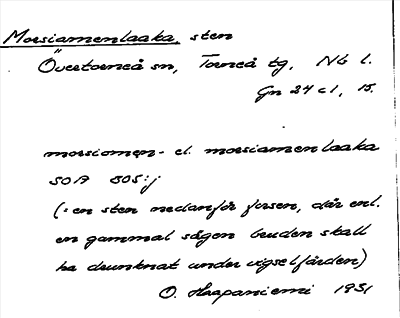 Morsiamenlaaka, sten
Övertorneå sn, Torneå tg, Nb l.
Gn 24 c 1, 15.
morsiomen- el. morsiamenlaaka
SOA SOS:j
(: en sten nedanför forsen, där enl.
en gammal sägen bruden skall
ha drunknat under vigselfärden)
O. Haapaniemi 1931